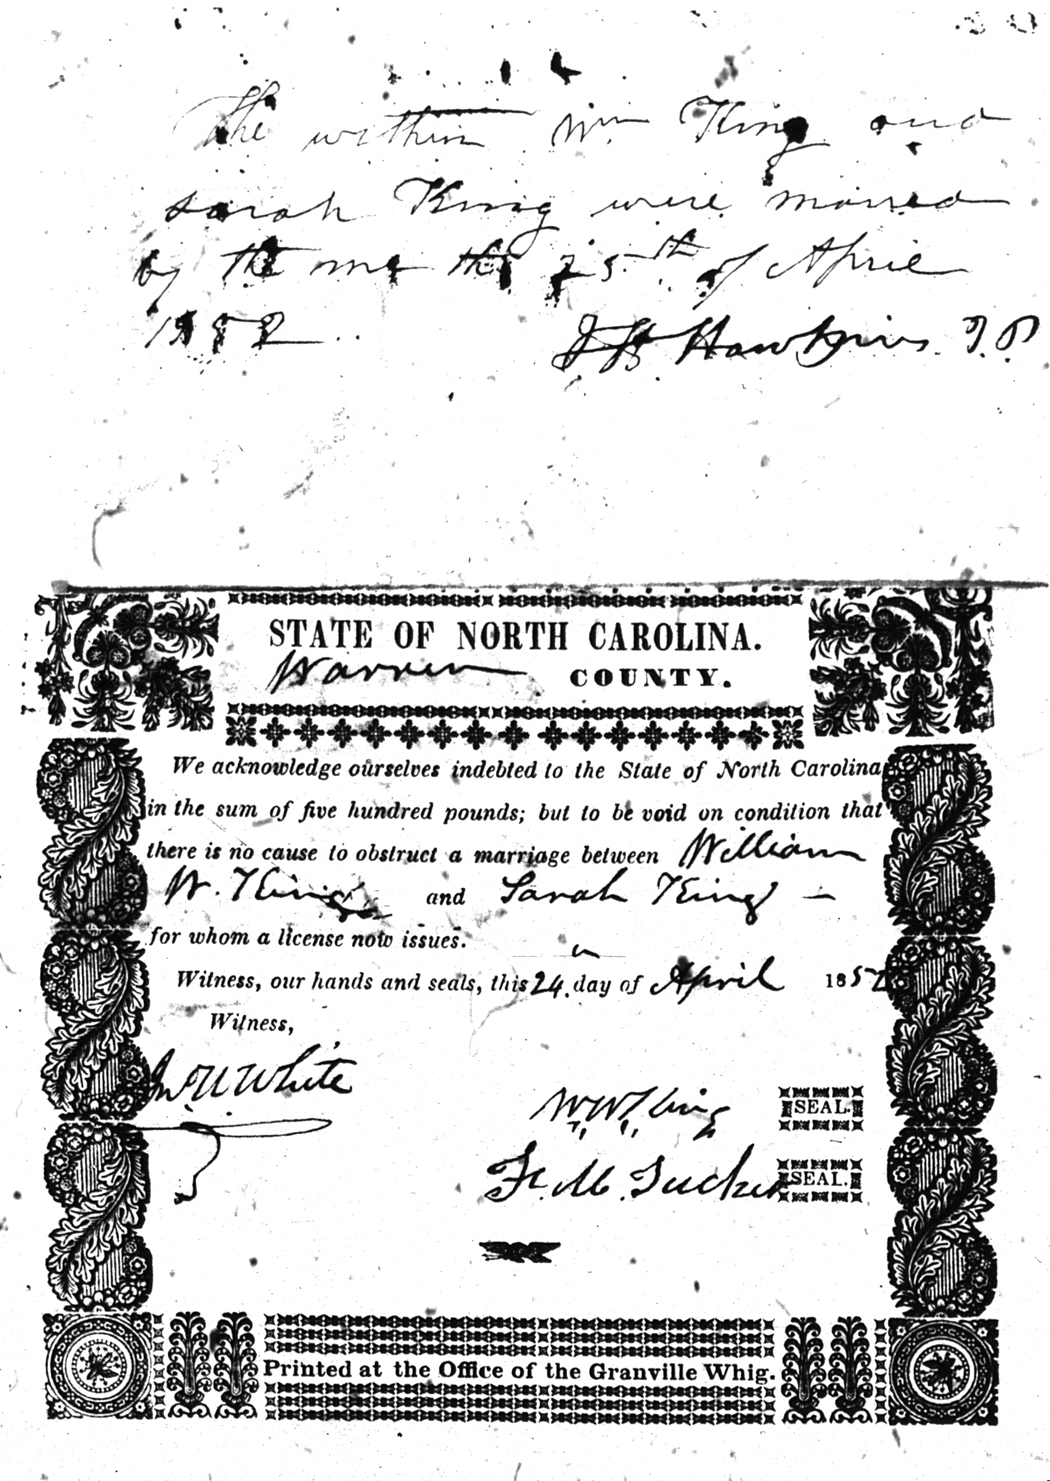 The within Wm King and
sarah King were marred
by th me the 25th of April
1852 J H Hawkins J. P.
STATE OF NORTH CAROLINA.
Warren COUNTY.
We acknowledge ourselves indebted to the State of North Carolina
in the sum of five hundred pounds; but to be void on condition that
there is no cause to obstruct a marriage between William
W. King and Sarah King —
for whom a license now issues.
Witness, our hands and seals, this 24 day of April 1852
Witness,
White
W W King SEAL.
F. M. Tucker SEAL.
Printed at the Office of the Granville Whig.